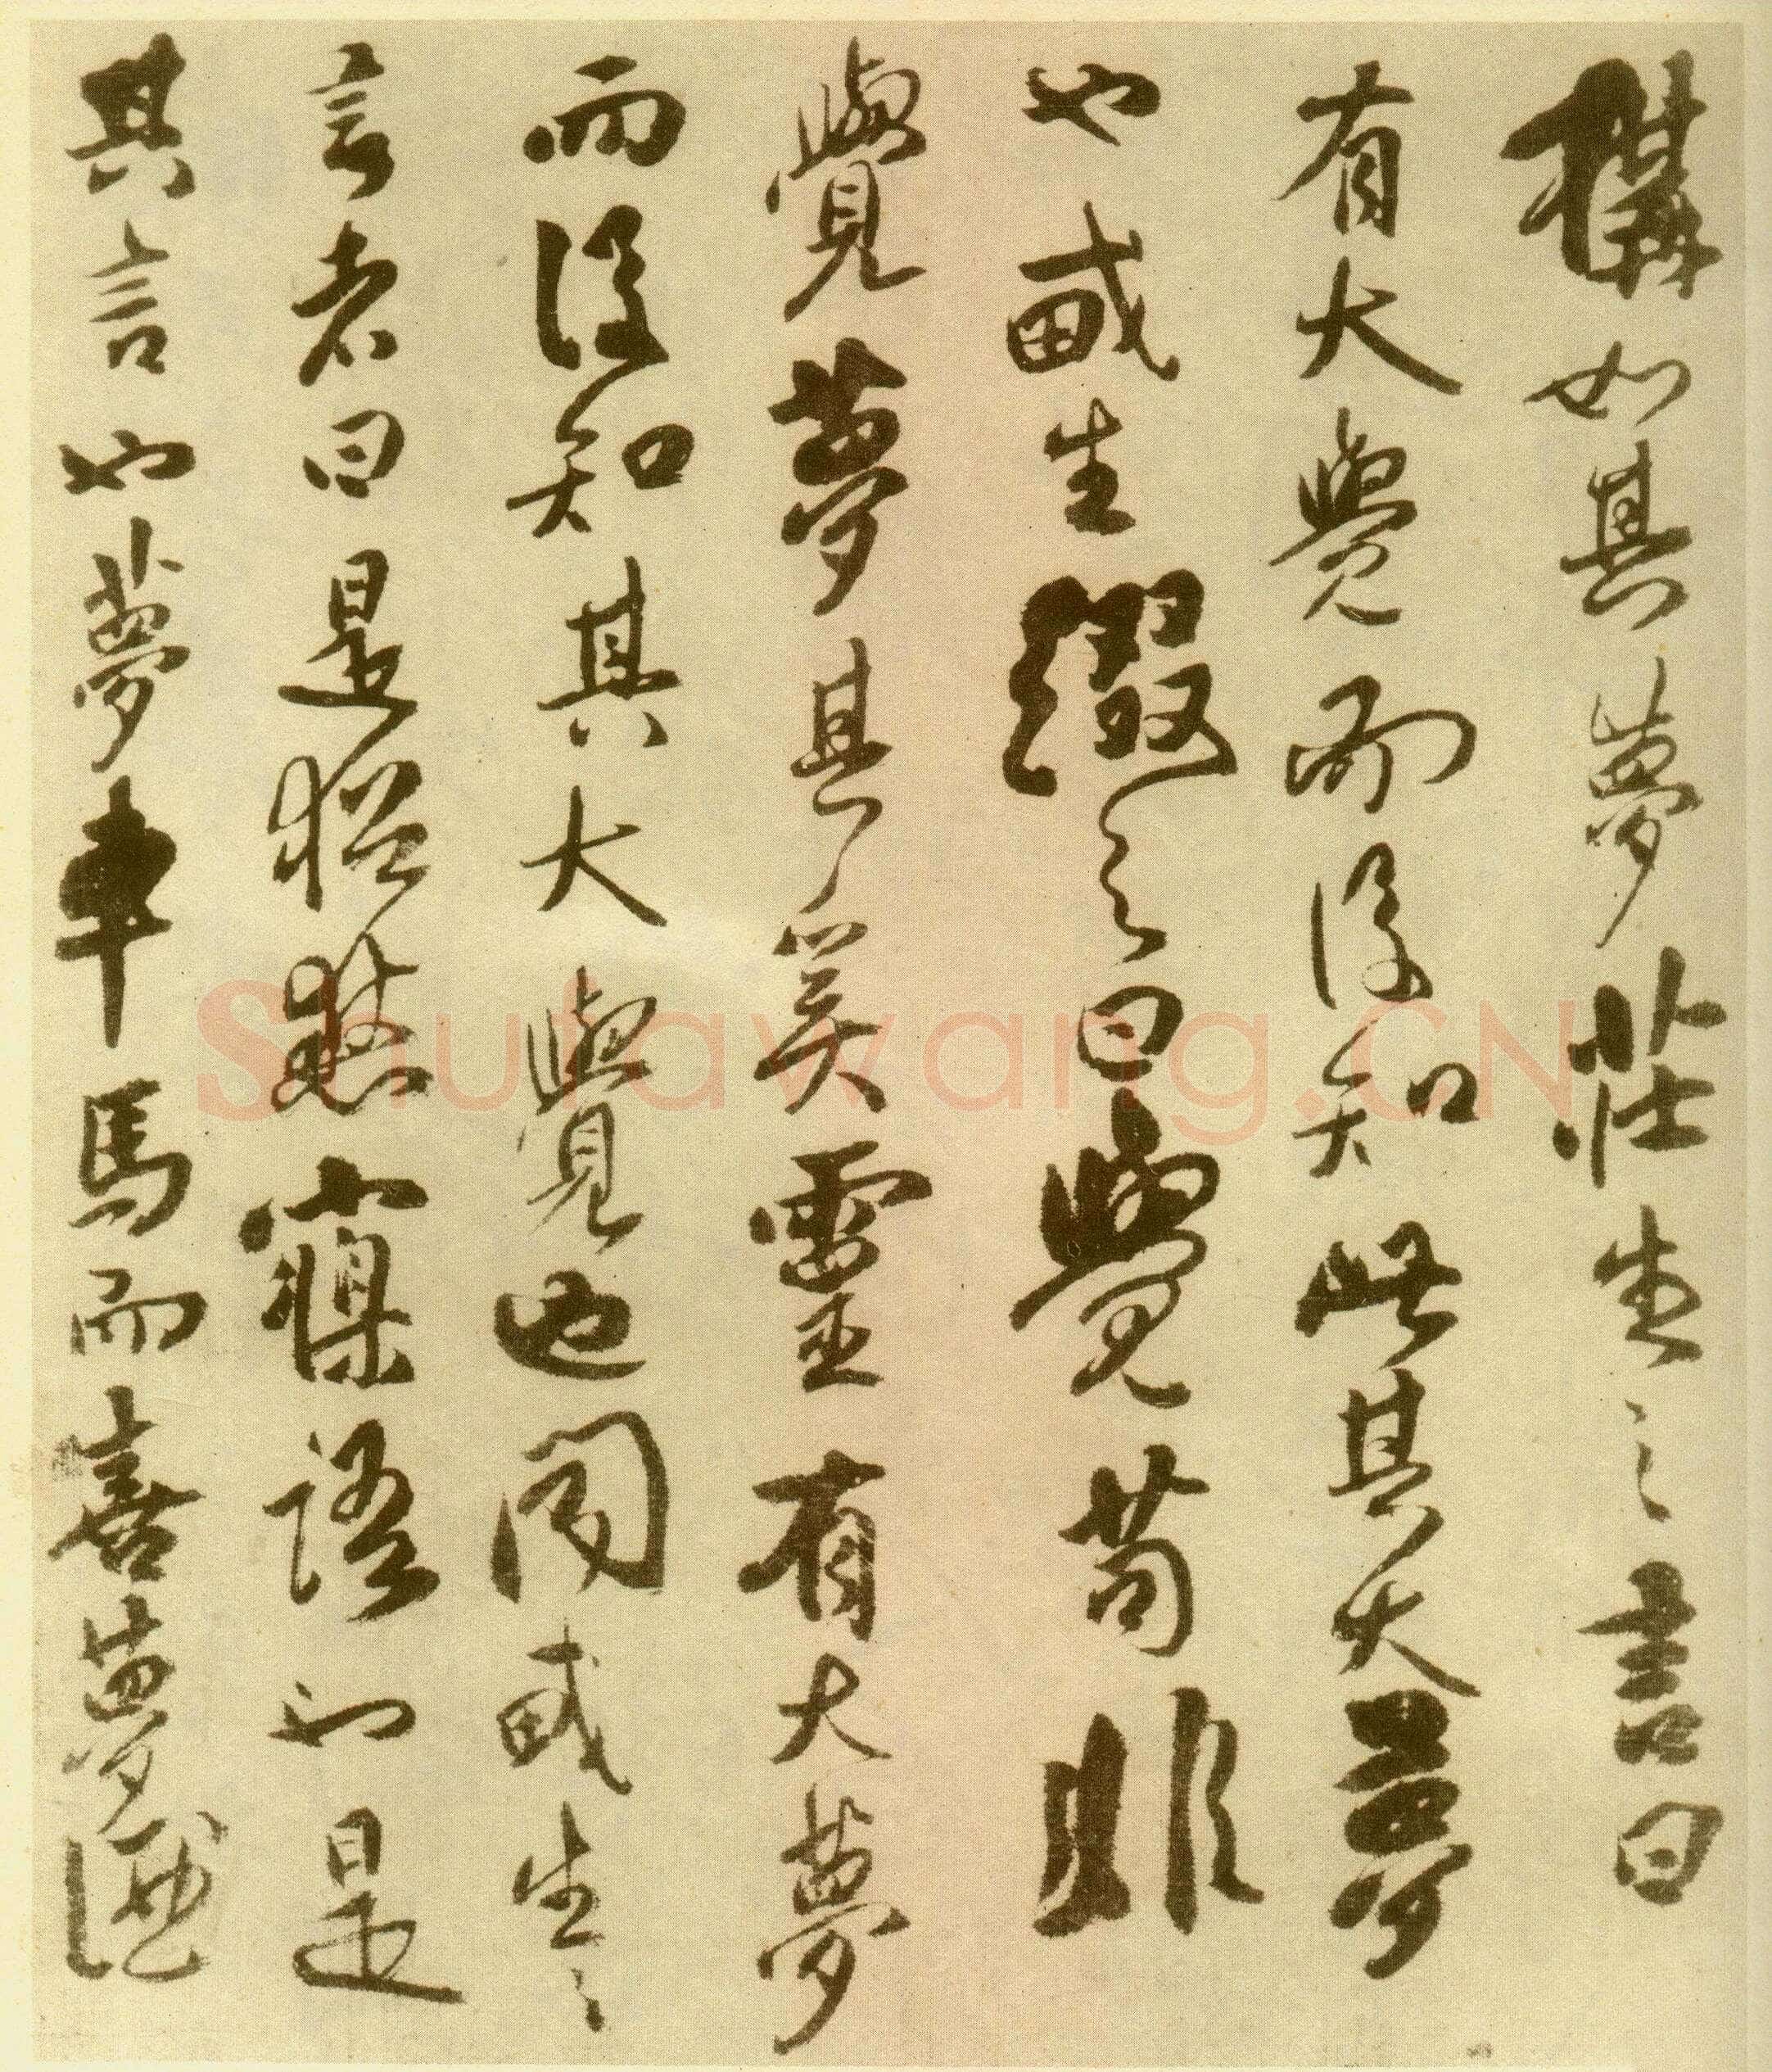 構如其夢莊生之言曰
有大覺而後知此其大夢
也生綴之曰覺苟非
覺夢其奚靈有大夢
而後知其大覺也聞生之
言者曰是猶寱語也是
其言也夢車馬而喜夢酒
Shufawang.CN